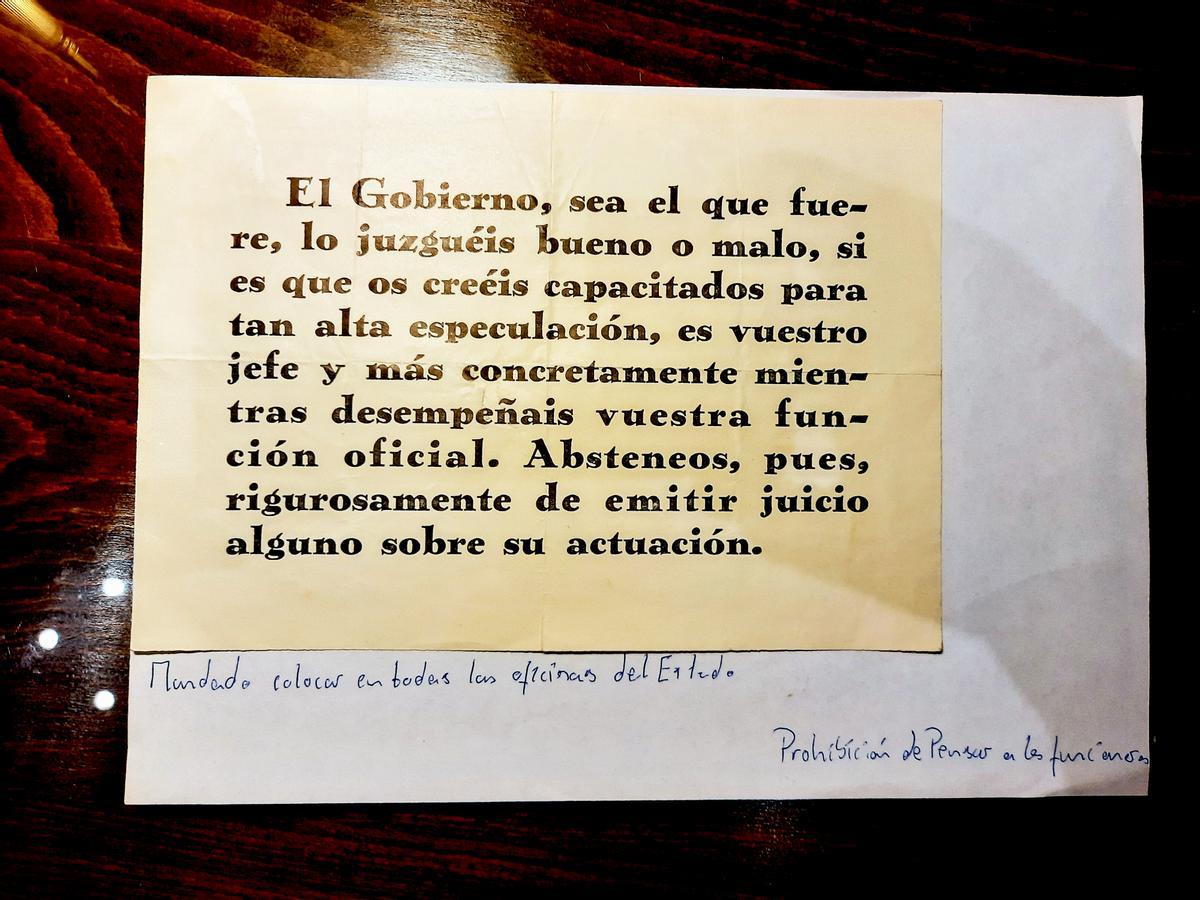 El Gobierno, sea el que fue-
re, lo juzguéis bueno o malo, si
es que os creéis capacitados para
tan alta especulación, es vuestro
jefe y más concretamente mien-
tras desempeñais vuestra fun-
ción oficial. Absteneos, pues,
rigurosamente de emitir juicio
alguno sobre su actuación.
Mandado colocar en todas las oficinas del Estado
Prohibición de Pensar a los